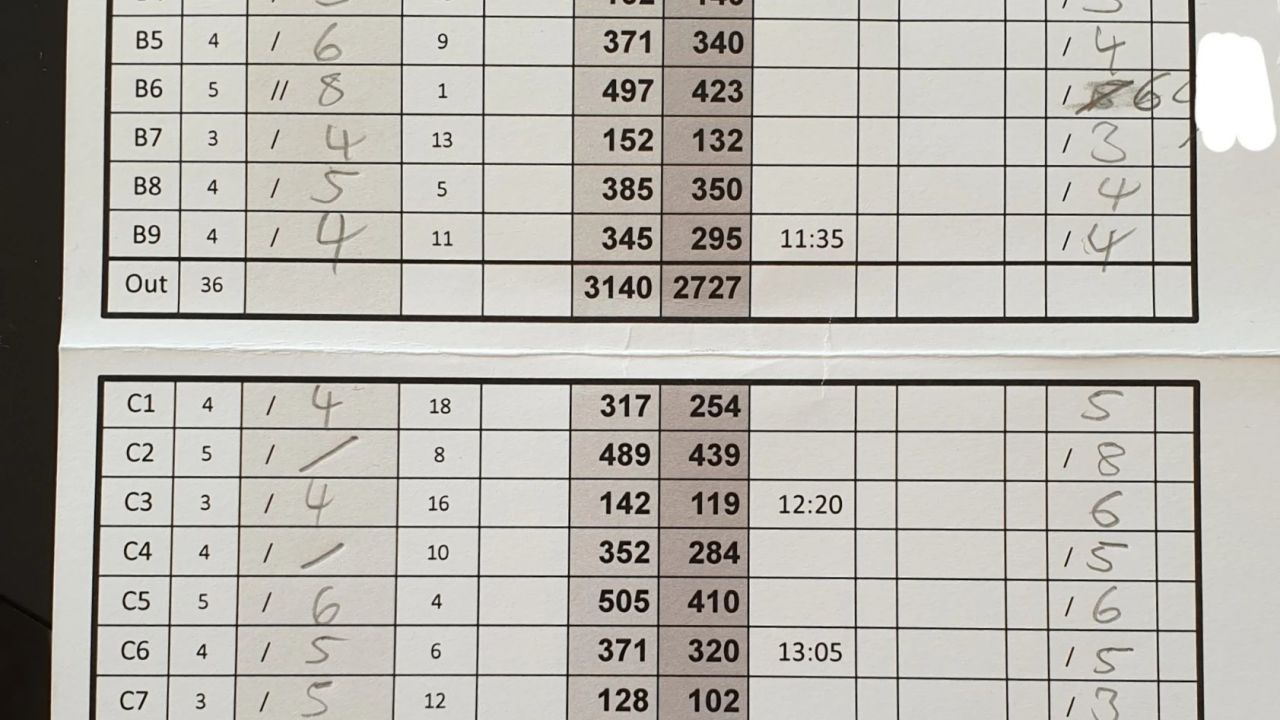 B5 4 / 6 9 371 340 / 4
B6 5 // 8 1 497 423 / 6
B7 3 / 4 13 152 132 / 3
B8 4 / 5 5 385 350 / 4
B9 4 / 4 11 345 295 11:35 / 4
Out 36 3140 2727
C1 4 / 4 18 317 254 5
C2 5 / / 8 489 439 / 8
C3 3 / 4 16 142 119 12:20 6
C4 4 / / 10 352 284 / 5
C5 5 / 6 4 505 410 / 6
C6 4 / 5 6 371 320 13:05 / 5
C7 3 / 5 12 128 102 / 3